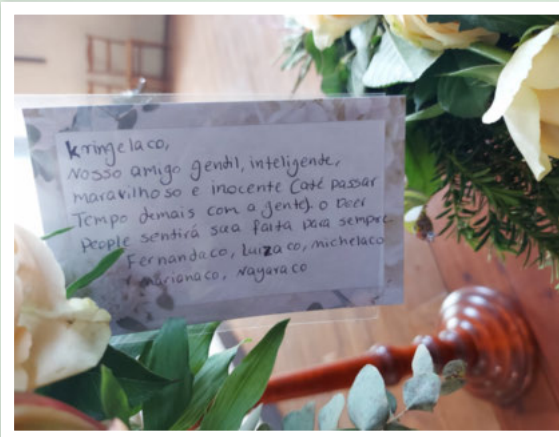 Kringelaco,
Nosso amigo gentil, inteligente,
maravilhoso e inocente (até passar
Tempo demais com a gente). o Deer
People sentirá sua falta para sempre
Fernandaco, Luizaco, michelaco
marianaco, Nayaraco